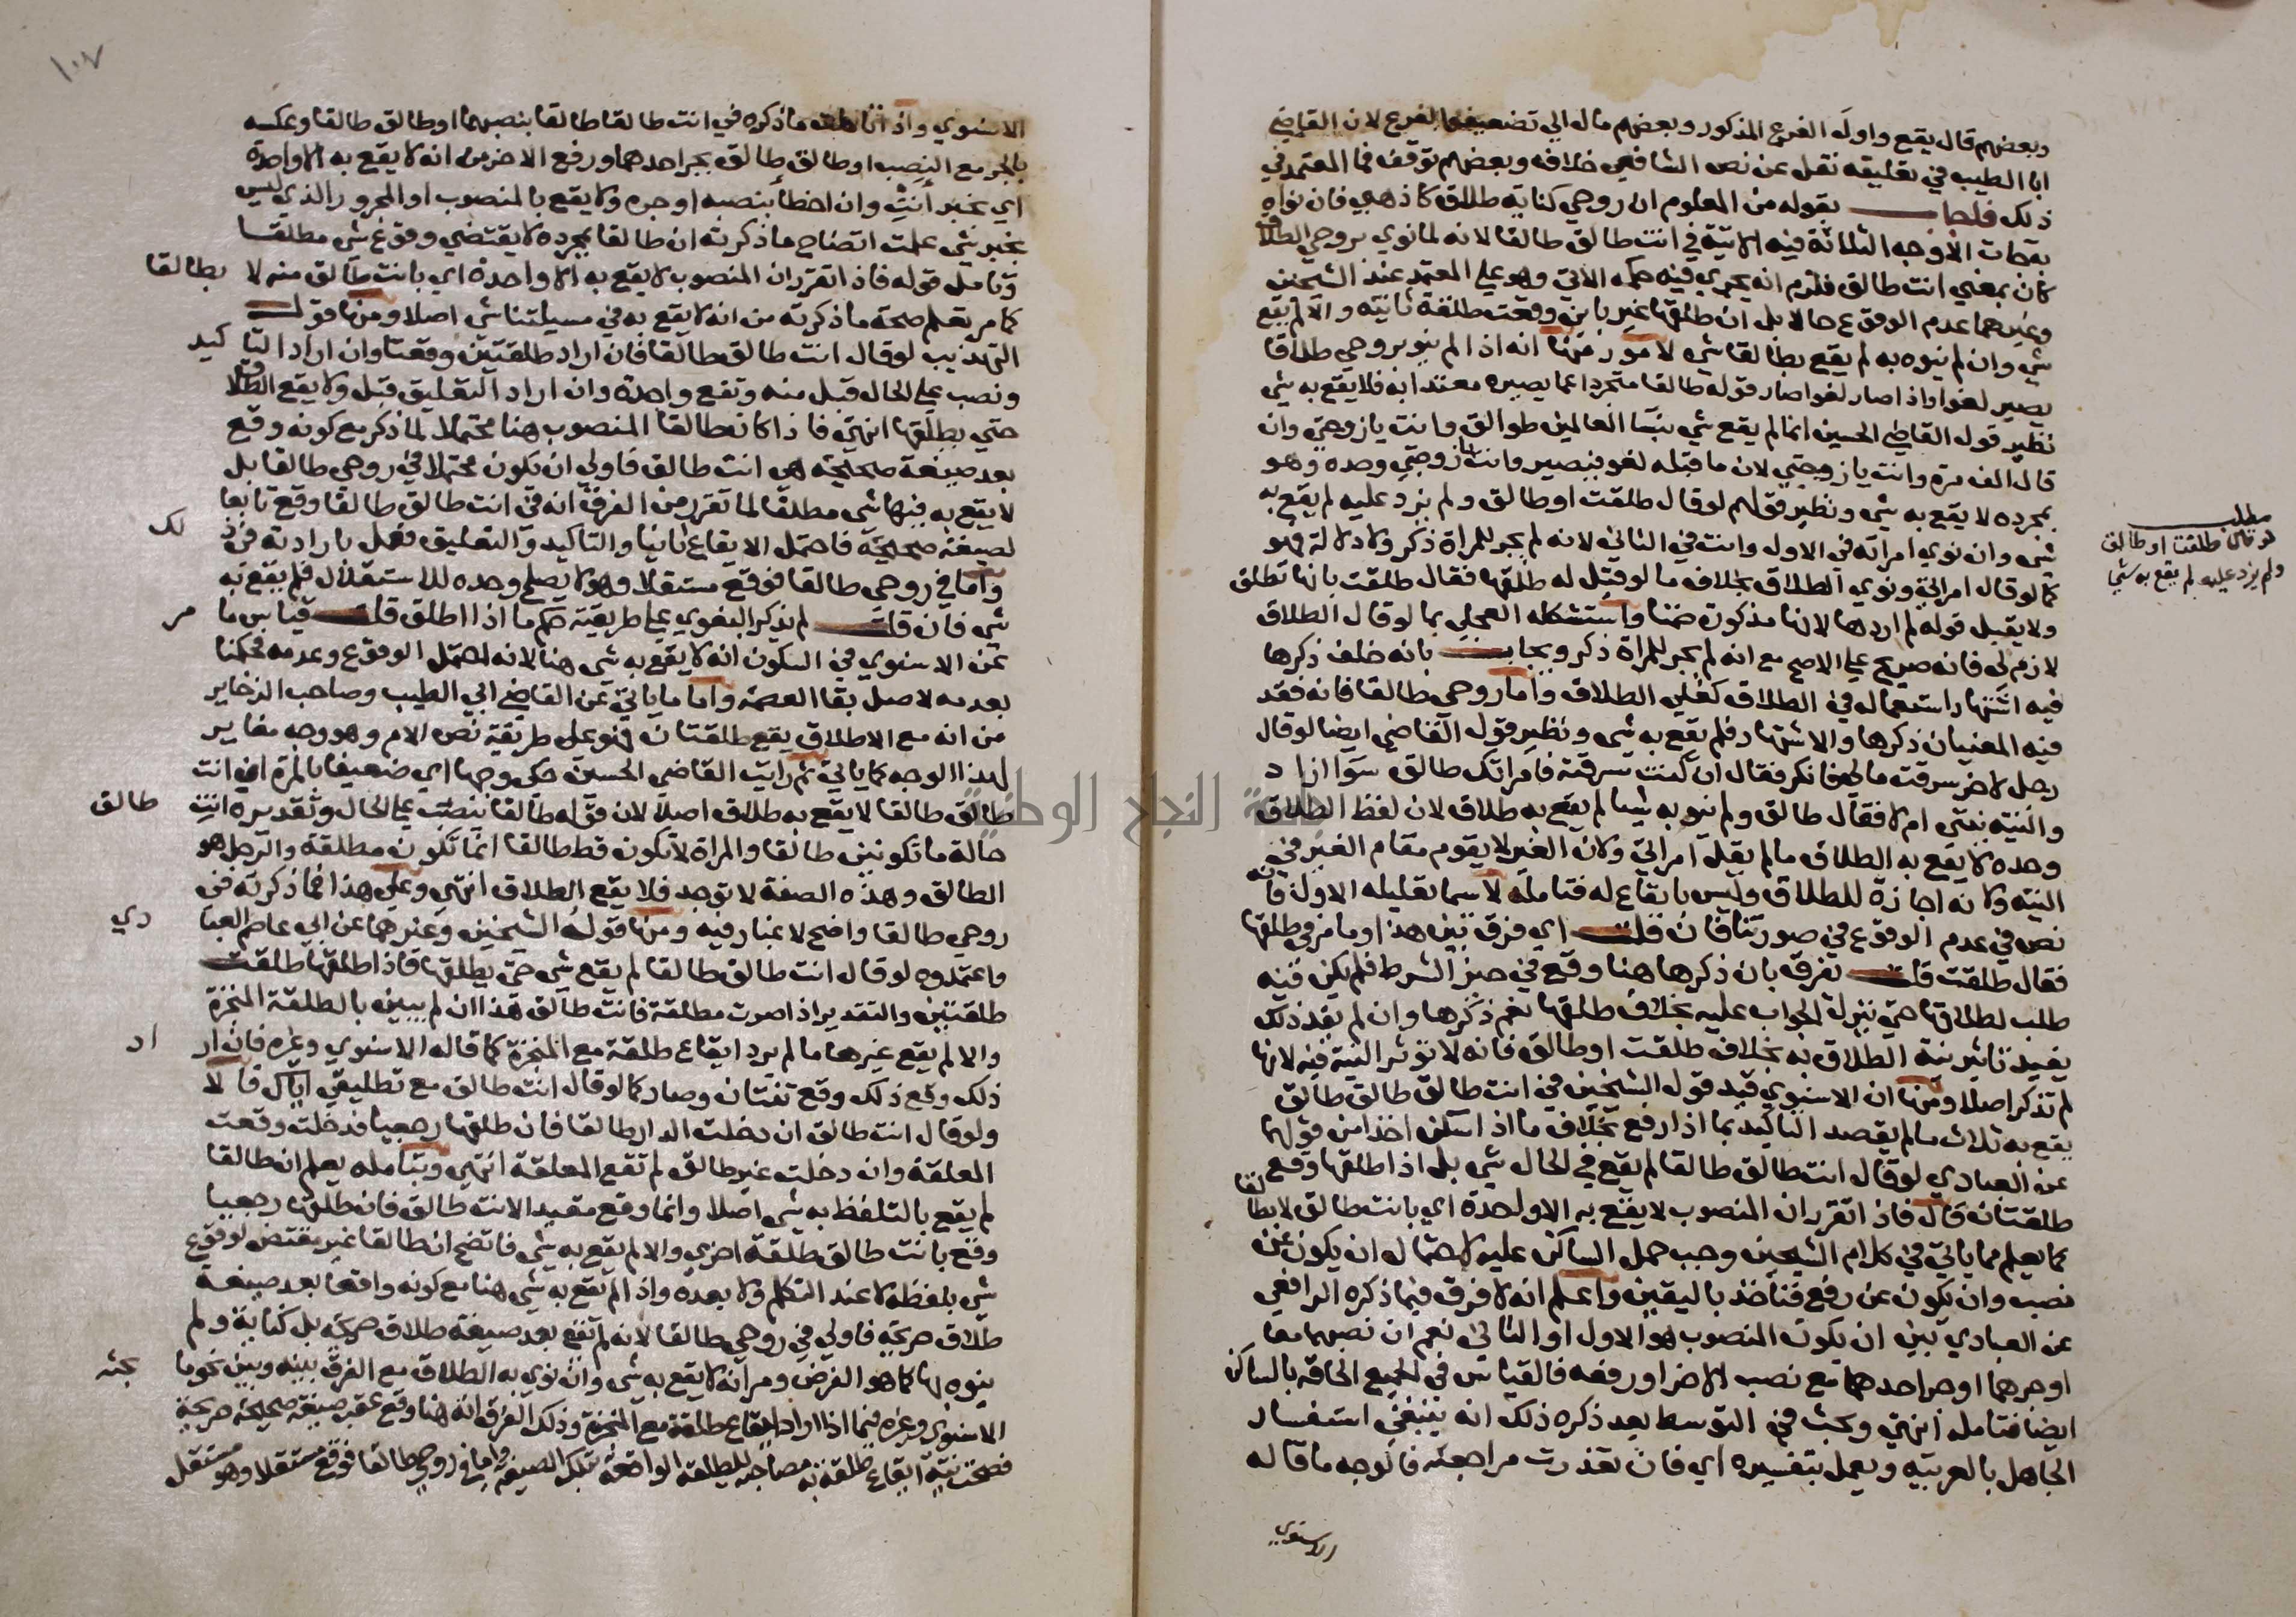 وبعضهم قال يقع واول الفرع المذكور وبعضهم مال الي تضعيف الفرع لان القاضي
ابا الطيب في تعليقه نقل عن نص الشافعي خلافه وبعضهم توقف فما المعتمد في
ذلك فاجاب بقوله من المعلوم ان روحي كناية طلاق كاذهبي فان نواه
بقطات الاوجه الثلاثة فيه الاتية في انت طالق طالقا لانه لما نوي بروحي الطلاق
كان بمعني انت طالق فلزم انه يجري فيه حكمه الاتي وهو علي المعتمد عند الشيخين
وغيرهما عدم الوقوع حالا بل ان طلقها غير باين وقعت طلقة ثانية والا لم يقع
شي وان لم ينوه به لم يقع بطالقا شي لامور منها انه اذا لم ينو بروحي طلاقا
يصير لغوا واذا صار لغوا صار قوله طالقا متجردا عما يصيره معتدا به فلا يقع به شي
نظير قول القاضي الحسين انما لم يقع شي بنسا العالمين طوالق وانت يا زوجتي وان
قال الف مرة وانت يا زوجتي لان ما قبله لغو فيصير وانت يا زوجتي وحده وهو
بمجرده لا يقع به شي ونظير قولهم لو قال طلقت او طالق ولم يزد عليه لم يقع به
شي وان نوي امراته في الاول وانت في الثاني لانه لم يجر للمراة ذكر ولا دلالة فهو
كما لو قال امراتي ونوي الطلاق بخلاف ما لو قيل له طلقها فقال طلقت بانها تطلق
ولا يقبل قوله لم اردها لانها مذكورة ضمنا واستشكله العجلي بما لو قال الطلاق
لازم لي فانه صريح علي الاصح مع انه لم يجر للمراة ذكر ويجاب بانه خلف ذكرها
فيه اشتهار استعماله في الطلاق كعلي الطلاق واما روحي طالقا فانه فقد
فيه المعنيان ذكرها والاشتهار فلم يقع به شي ونظير قول القاضي ايضا لو قال
رجل لاخر سرقت مالي فانكر فقال ان كنت سرقته فامراتك طالق سوا اراد
والنية نيتي ام لا فقال طالق ولم ينو به شيا لم يقع به طلاق لان لفظ الطلاق
وحده لا يقع به الطلاق ما لم يقل امراتي ولان الغير لا يقوم مقام الغير في
النية ولانه اجازة للطلاق وليس بايقاع له فتامله لا سيما تعليله الاول فانه
نص في عدم الوقوع في صورتنا فان قلت اي فرق بين هذا وما مر في طلقها
فقال طلقت قلت يفرق بان ذكرها هنا وقع في حيز الشرط فلم يكن فيه
طلب لطلاقها حتي ينزل الجواب عليه بخلاف طلقها نعم ذكرها وان لم يفد ذلك
يفيد تاثير نية الطلاق به بخلاف طلقت او طالق فانه لا تؤثر النية فيه لانها
لم تذكر اصلا ومنها ان الاسنوي قيد قول الشيخين في انت طالق طالق طالق
يقع به ثلاث ما لم يقصد التاكيد بما اذا رفع بخلاف ما اذا اسكن اخذا من قولهما
عن العبادي لو قال انت طالق طالقا لم يقع في الحال شي بل اذا طلقها وقع
طلقتان قال فاذا تقرر ان المنصوب لا يقع به الا واحدة اي بانت طالق لا بطالقا
كما يعلم مما ياتي في كلام الشيخين وجب حمل الساكن عليه لاحتمال ان يكون عن
نصب وان يكون عن رفع فناخذ باليقين واعلم انه لا فرق فيما ذكره الرافعي
عن العبادي بين ان يكون المنصوب هو الاول او الثاني نعم ان نصبهما معا
او جرهما او جر احدهما مع نصب الاخر او رفعه فالقياس في الجميع الحاقه بالساكن
ايضا فتامله انتهي وبحث في التوسط بعد ذكره ذلك انه ينبغي استفسار
الجاهل بالعربية ويعمل بتفسيره اي فان تعذرت مراجعته فالوجه ما قاله
الاسنوي
مطلب
لو قال طلقت او طالق
ولم يزد عليه لم يقع به شيا
١٠٧
الاسنوي واذا تاملت ما ذكره في انت طالقا طالقا بنصبهما او طالق طالقا وعكسه
بالجر مع النصب او طالق طالق بجر احدهما ورفع الاخر من انه لا يقع به الا واحدة
اي بخبر انت وان اخطا بنصبه او جره ولا يقع بالمنصوب او المجرور الذي ليس
بخبر شي علمت اتضاح ما ذكرته ان طالقا بمجرده لا يقتضي وقوع شي مطلقا
وتامل قوله فاذا تقرر ان المنصوب لا يقع به الا واحدة اي بانت طالق منه لا بطالقا
كما مر تعلم صحة ما ذكرته من انه لا يقع به في مسيلتنا شي اصلا ومنها قول
التهذيب لو قال انت طالق طالقا فان اراد طلقتين وقعتا وان اراد التاكيد
ونصب علي الحال قبل منه وتقع واحدة وان اراد التعليق قبل ولا يقع الطلاق
حتي يطلقها انتهي فاذا كان طالقا المنصوب هنا محتملا لما ذكر مع كونه وقع
بعد صيغة صحيحة هي انت طالق فاولي ان يكون محتملا في روحي طالقا بل
لا يقع به فيها شي مطلقا لما تقرر من الفرق انه في انت طالق طالقا وقع تابعا
لصيغة صحيحة فاحتمل الايقاع ثانيا والتاكيد والتعليق فعمل بارادته في ذلك
واما في روحي طالقا فوقع مستقلا وهو لا يصلح وحده للاستقلال فلم يقع به
شي فان قلت لم يذكر البغوي علي طريقته حكم ما اذا اطلق قلت قياس ما مر
عن الاسنوي في السكون انه لا يقع به شي هنا لانه احتمل الوقوع وعدمه فحكمنا
بعدمه لاصل بقا العصمة واما ما ياتي عن القاضي ابي الطيب وصاحب الذخاير
من انه مع الاطلاق يقع طلقتان فهو علي طريقة نص الام وهو وجه مغاير
لهذا الوجه كما ياتي ثم رايت القاضي الحسين حكي وجها اي ضعيفا بالمرة ان انت
طالق طالقا لا يقع به طلاق اصلا لان قوله طالقا ينصب علي الحال وتقديره انت طالق
حالة ما تكونين طالقا والمراة لا تكون قط طالقا انما تكون مطلقة والرجل هو
الطالق وهذه الصفة لا توجد فلا يقع الطلاق انتهي وعلي هذا فما ذكرته في
روحي طالقا واضح لا غبار فيه ومنها قول الشيخين وغيرهما عن ابي عاصم العبادي
واعتمدوه لو قال انت طالق طالقا لم يقع شي حتي يطلقها فاذا طلقها طلقت
طلقتين والتقدير اذا صرت مطلقة فانت طالق هذا ان لم يبين بالطلقة المنجزة
والا لم يقع غيرها ما لم يرد ايقاع طلقة مع المنجزة كما قاله الاسنوي وغيره فان اراد
ذلك وقع ذلك وقع ثنتان وصار كما لو قال انت طالق مع تطليقي اياك قالا
ولو قال انت طالق ان دخلت الدار طالقا فان طلقها رجعيا فدخلت وقعت
المعلقة وان دخلت غير طالق لم تقع المعلقة انتهي وبتامله يعلم ان طالقا
لم يقع بالتلفظ به شي اصلا وانما وقع مقيدا لانت طالق فان طلقها رجعيا
وقع بانت طالق طلقة اخري والا لم يقع به شي فاتضح ان طالقا غير مقتض لوقوع
شي بلفظه لا عند التكلم ولا بعده واذا لم يقع به شي هنا مع كونه واقعا بعد صيغة
طلاق صريحة فاولي في روحي طالقا لانه لم تقع بعد صيغة طلاق صريحة بل كناية ولم
ينوه بها كما هو الفرض ومر انه لا يقع به شي وان نوي به الطلاق مع الفرق بينه وبين نحو ما بحثه
الاسنوي وغيره فيما اذا اراد ايقاع طلقة مع المنجزة وذلك الفرق انه هنا وقع عقب صيغة صحيحة صريحة
فصحت نية ايقاع طلقة به مصاحبه للطلقة الواقعة بتلك الصيغة واما في روحي طالقا فوقع مستقلا وهو مستقل